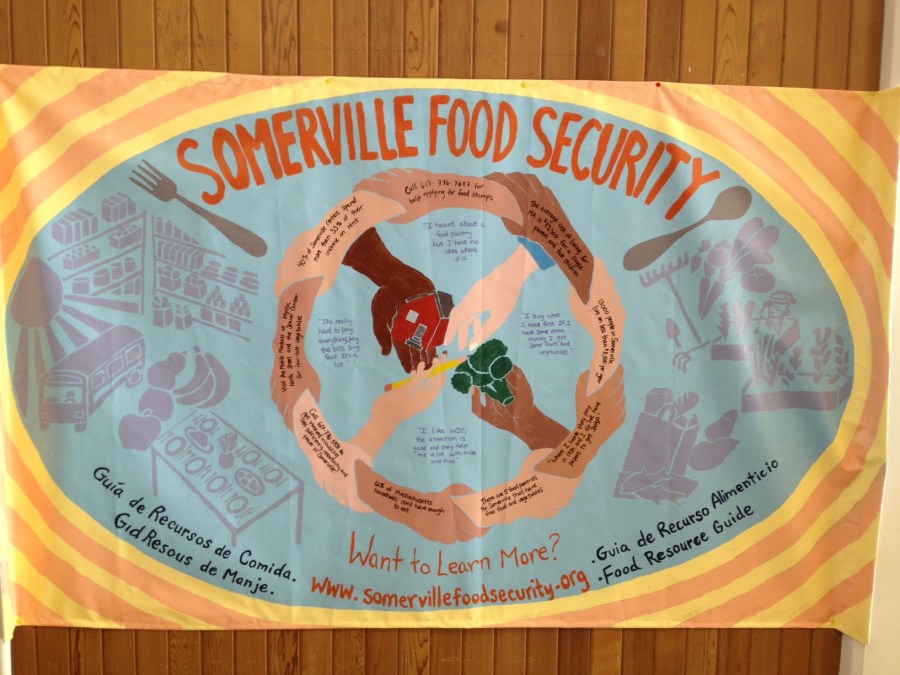 SOMERVILLE FOOD SECURITY
Call 617-776-7687 for
help applying for food stamps
The average cost of living for
MA is
for a single
parent and two children
13,000 people in Somerville
live on less than
per year
There are 5 food pantries
in Somerville that have
free food and vegetables
of Massachusetts
households don't have enough
to eat
Call 617-776-
Visit the Mobile Market at Mystic
North Street and the Senior Center
for low-cost vegetables
40% of Somerville renters spend
more than 35% of their
income on rent
"I heard about a
food pantry
but I have no
idea where
it is."
"It's really
hard to pay
everything, pay
the bills, buy
food. It's a
lot."
"I buy what
I need first. If I
have some extra
money I get
some fruits and
vegetables
"I like WIC,
the attention is
good and they help
me a lot with milk
and food"
Guía de Recursos de Comida.
Gid Resous de Manje.
Want to Learn More?
www.somervillefoodsecurity.org
·Guia de Recurso Alimenticio
·Food Resource Guide